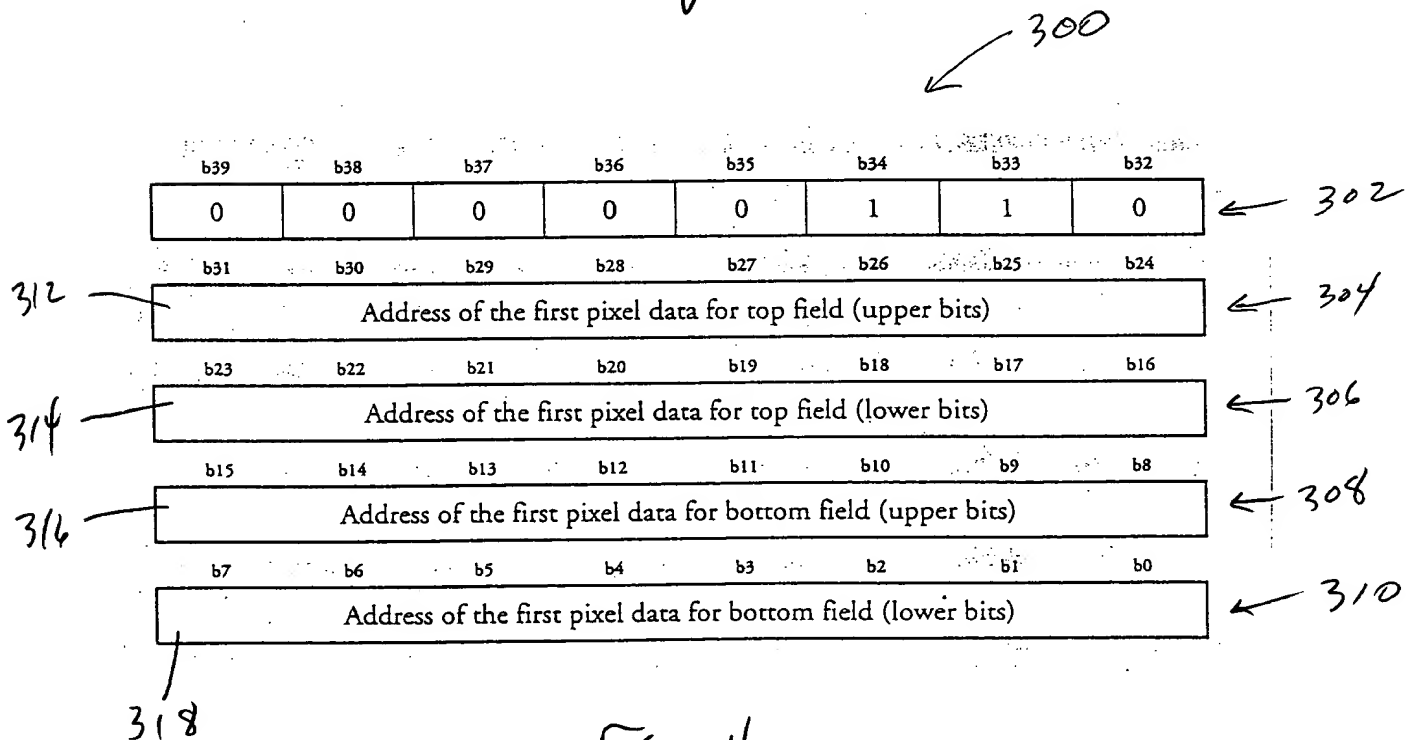 300
b39 b38 b37 b36 b35 b34 b33 b32
0 0 0 0 0 1 1 0
302
b31 b30 b29 b28 b27 b26 b25 b24
312
Address of the first pixel data for top field (upper bits)
304
b23 b22 b21 b20 b19 b18 b17 b16
314
Address of the first pixel data for top field (lower bits)
306
b15 b14 b13 b12 b11 b10 b9 b8
316
Address of the first pixel data for bottom field (upper bits)
308
b7 b6 b5 b4 b3 b2 b1 b0
Address of the first pixel data for bottom field (lower bits)
310
318